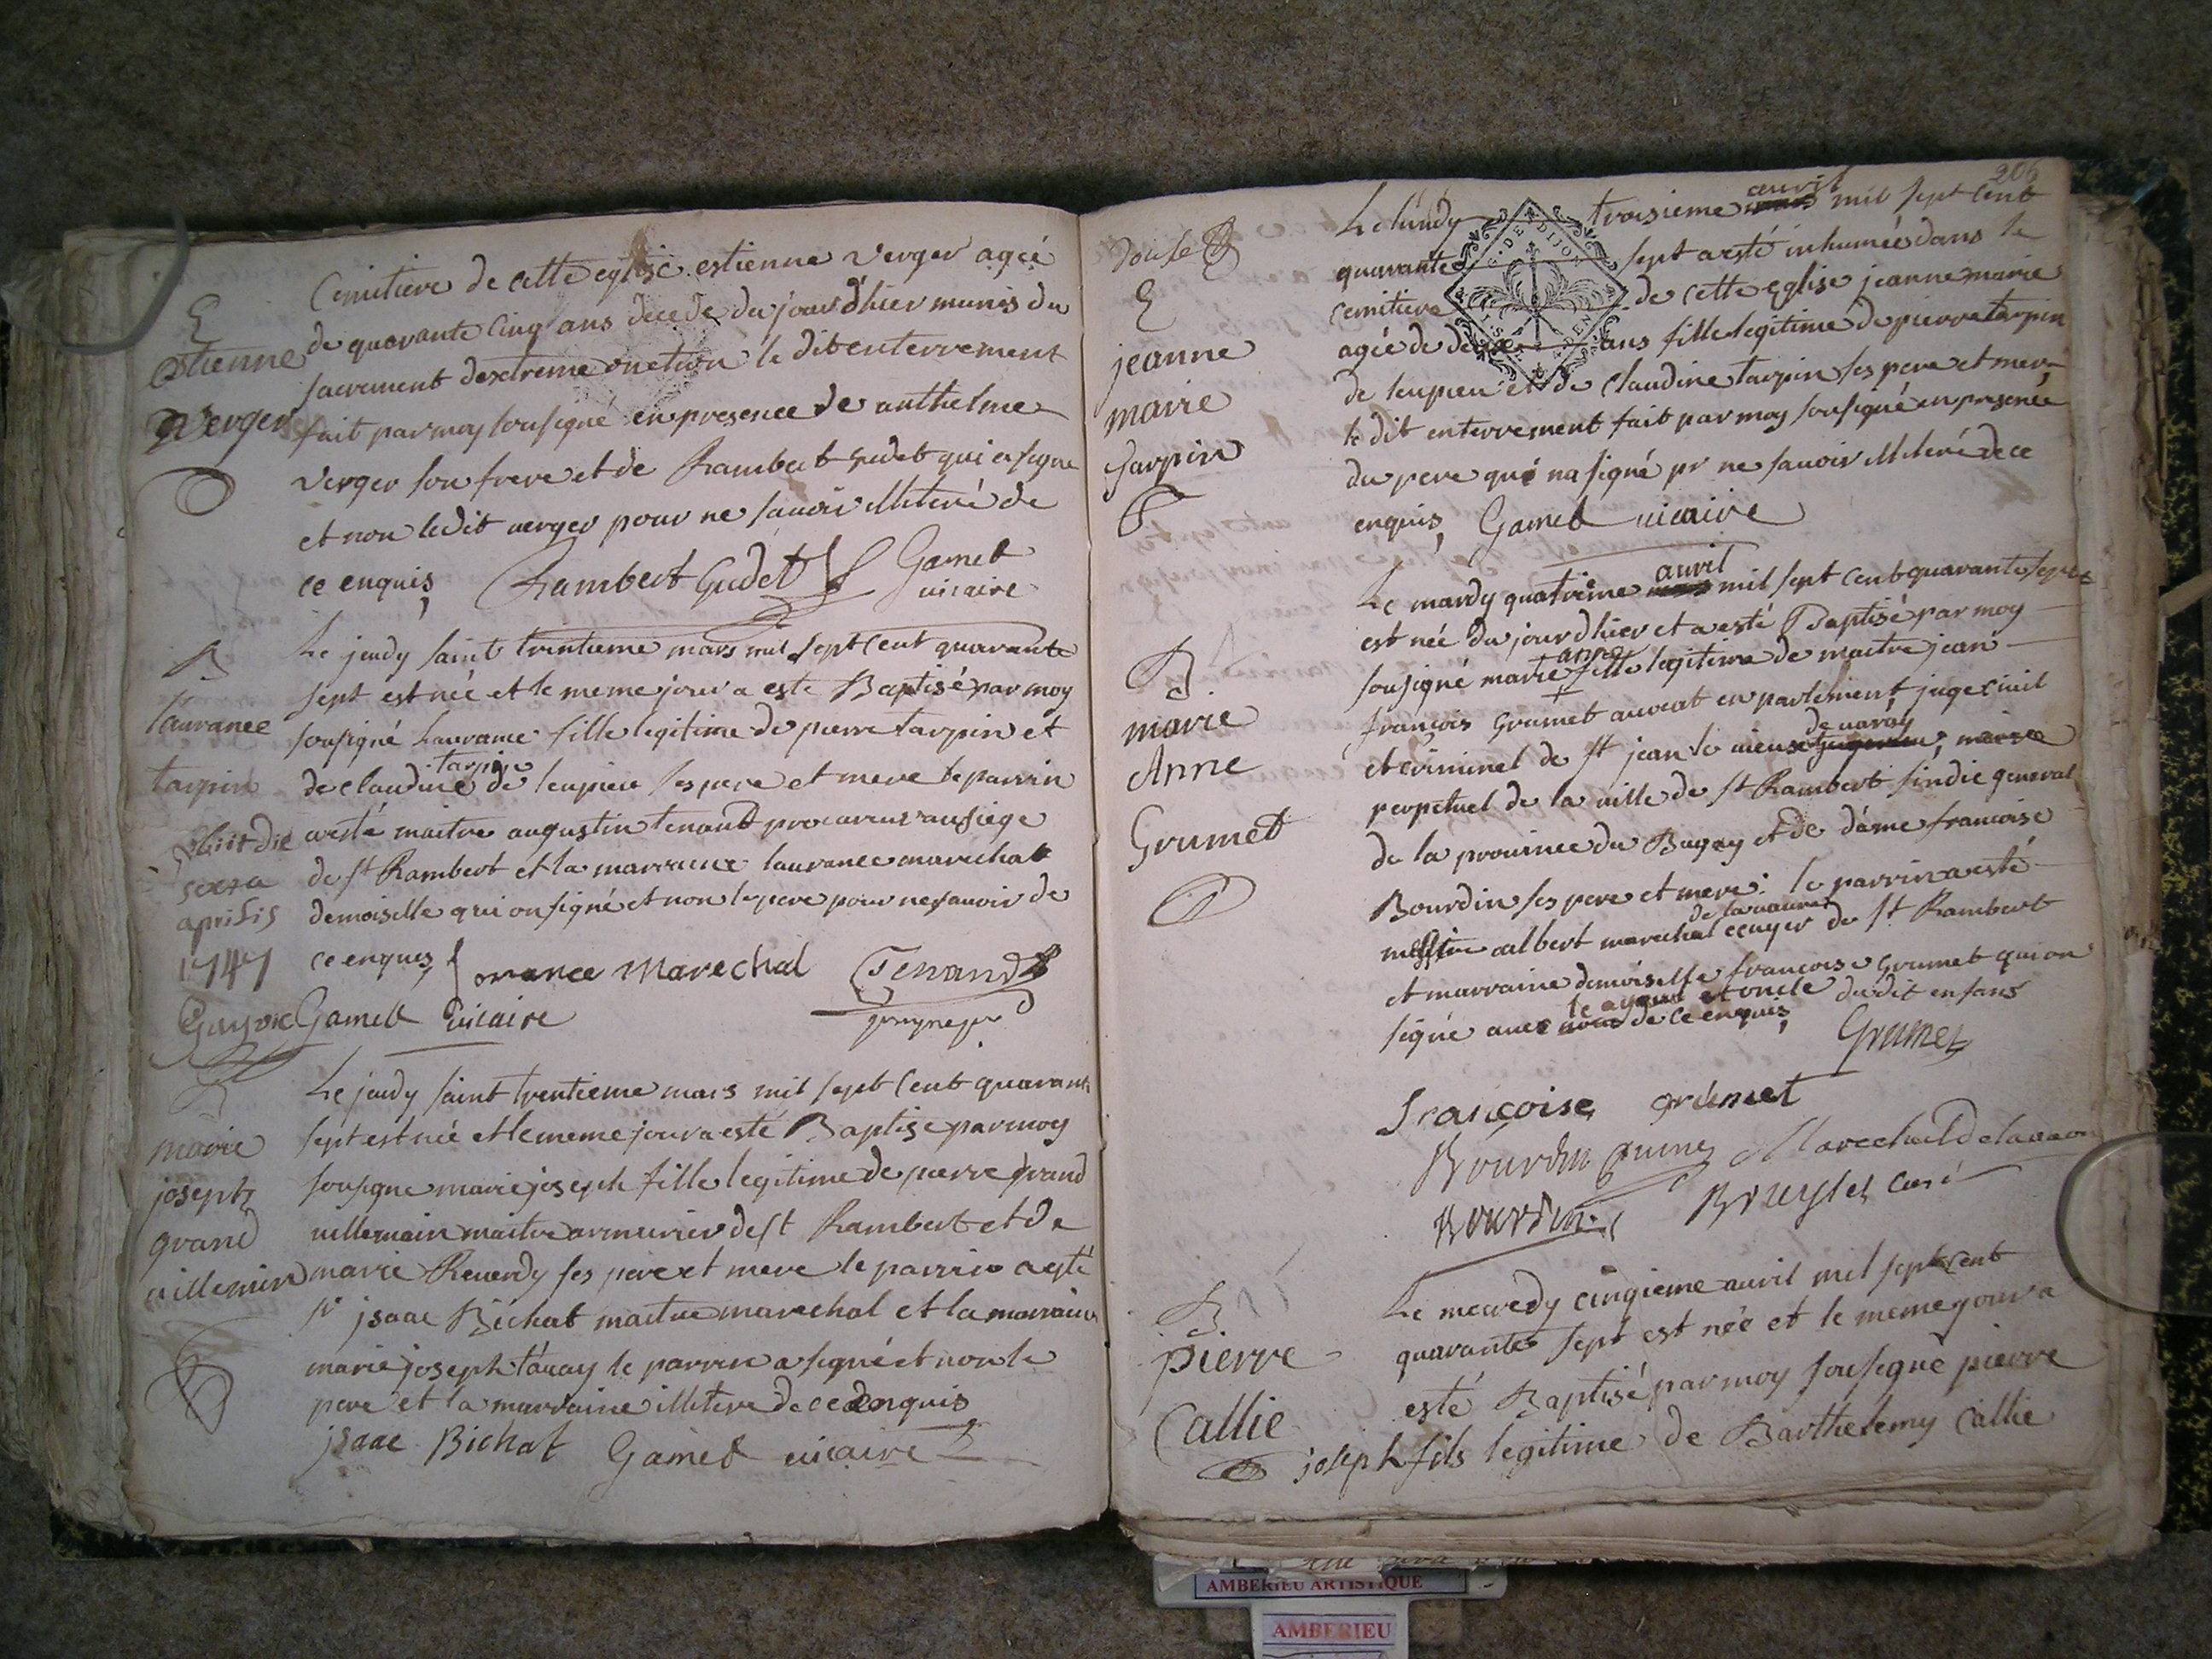 E
Estienne
Verger
Cemitiere de cette eglise estienne verger agée
de quarante cinq ans decede du jour d'hier munis du
sacrement dextreme onction le dit enterrement
fait par moy sousigné en presence de anthelme
verger son frere et de Rambert Gudet qui a signé
et non ledit verger pour ne sauoir illiteré de
ce enquis Rambert Gudet Gamet
uicaire
B
laurance
tarpin
obiit die
sexta
aprilis
1747
Le jeudy saint trentieme mars mil sept cent quarante
sept est née et le meme jour a este Baptisé par moy
sousigné Laurance fille legitime de pierre tarpin et
tarpin
de claudine de leupieu ses pere et mere le parrin
aesté maitre augustin tenand procureur au siege
de st Rambert et la marraine laurance marechal
demoiselle qui on signé et non le pere pour ne sauoir de
ce enquis orance Marechal Tenand
Gamet uicaire
B
marie
joseph
grand
uillemin
Le jeudy saint trentieme mars mil sept Cent quarante
sept est née et le meme jour a esté Baptisé par moy
sousigne marie joseph fille legitime de pierre grand
uillemain maitre armurier de st Rambert et de
marie Reuerdy ses pere et mere le parrin a esté
sr jsaac Bichat maitre marechal et la marraine
marie joseph tauay le parrin a signé et non le
pere et la marraine illitere de ce enquis
jsaac Bichat Gamet uicaire
206
E
jeanne
marie
tarpin
auril
Le lundy troisieme mars mil sept Cent
quarante sept a esté inhumée dans le
cemitiere de cette Eglise jeanne marie
G. DE DIJON
agée de deux ans fille legitime de pierre tarpin
de leupieu et de Claudine tarpin ses pere et mere
le dit enterrement fait par moy sousigné en presence
du pere qui na signé pr ne sauoir illiteré de ce
enquis Gamet uicaire
B.
marie
Anne
Grumet
auril
Le mardy quatrieme mars mil sept cent quarante sept
est née du jour d hier et a esté Baptisé par moy
anne
sousigné marie fille legitime de maitre jean
françois Grumet auocat en parlement juge ciuil
de uaray
et criminel de st jean le uieux maire
perpetuel de la uille de st Rambert sindic general
de la prouince du Bugey et de dame francoise
Bourdin ses pere et mere: le parrin a esté
messire albert marechal ecuyer de st Rambert
et marraine demoiselle francoise Grumet qui on
le ayeul et oncle dudit enfans
signé auec nous de ce enquis
Grumet
françoise grumet
Bourdin
Bourdin
Bruyset curé
B.
pierre
Callie
Le mecredy cinqieme auril mil sept cent
quarante sept est née et le meme jour a
esté Baptisé par moy sousigné pierre
joseph fils legitime de Barthelemy Callie
AMBERIEU ARTISTIQUE
AMBERIEU